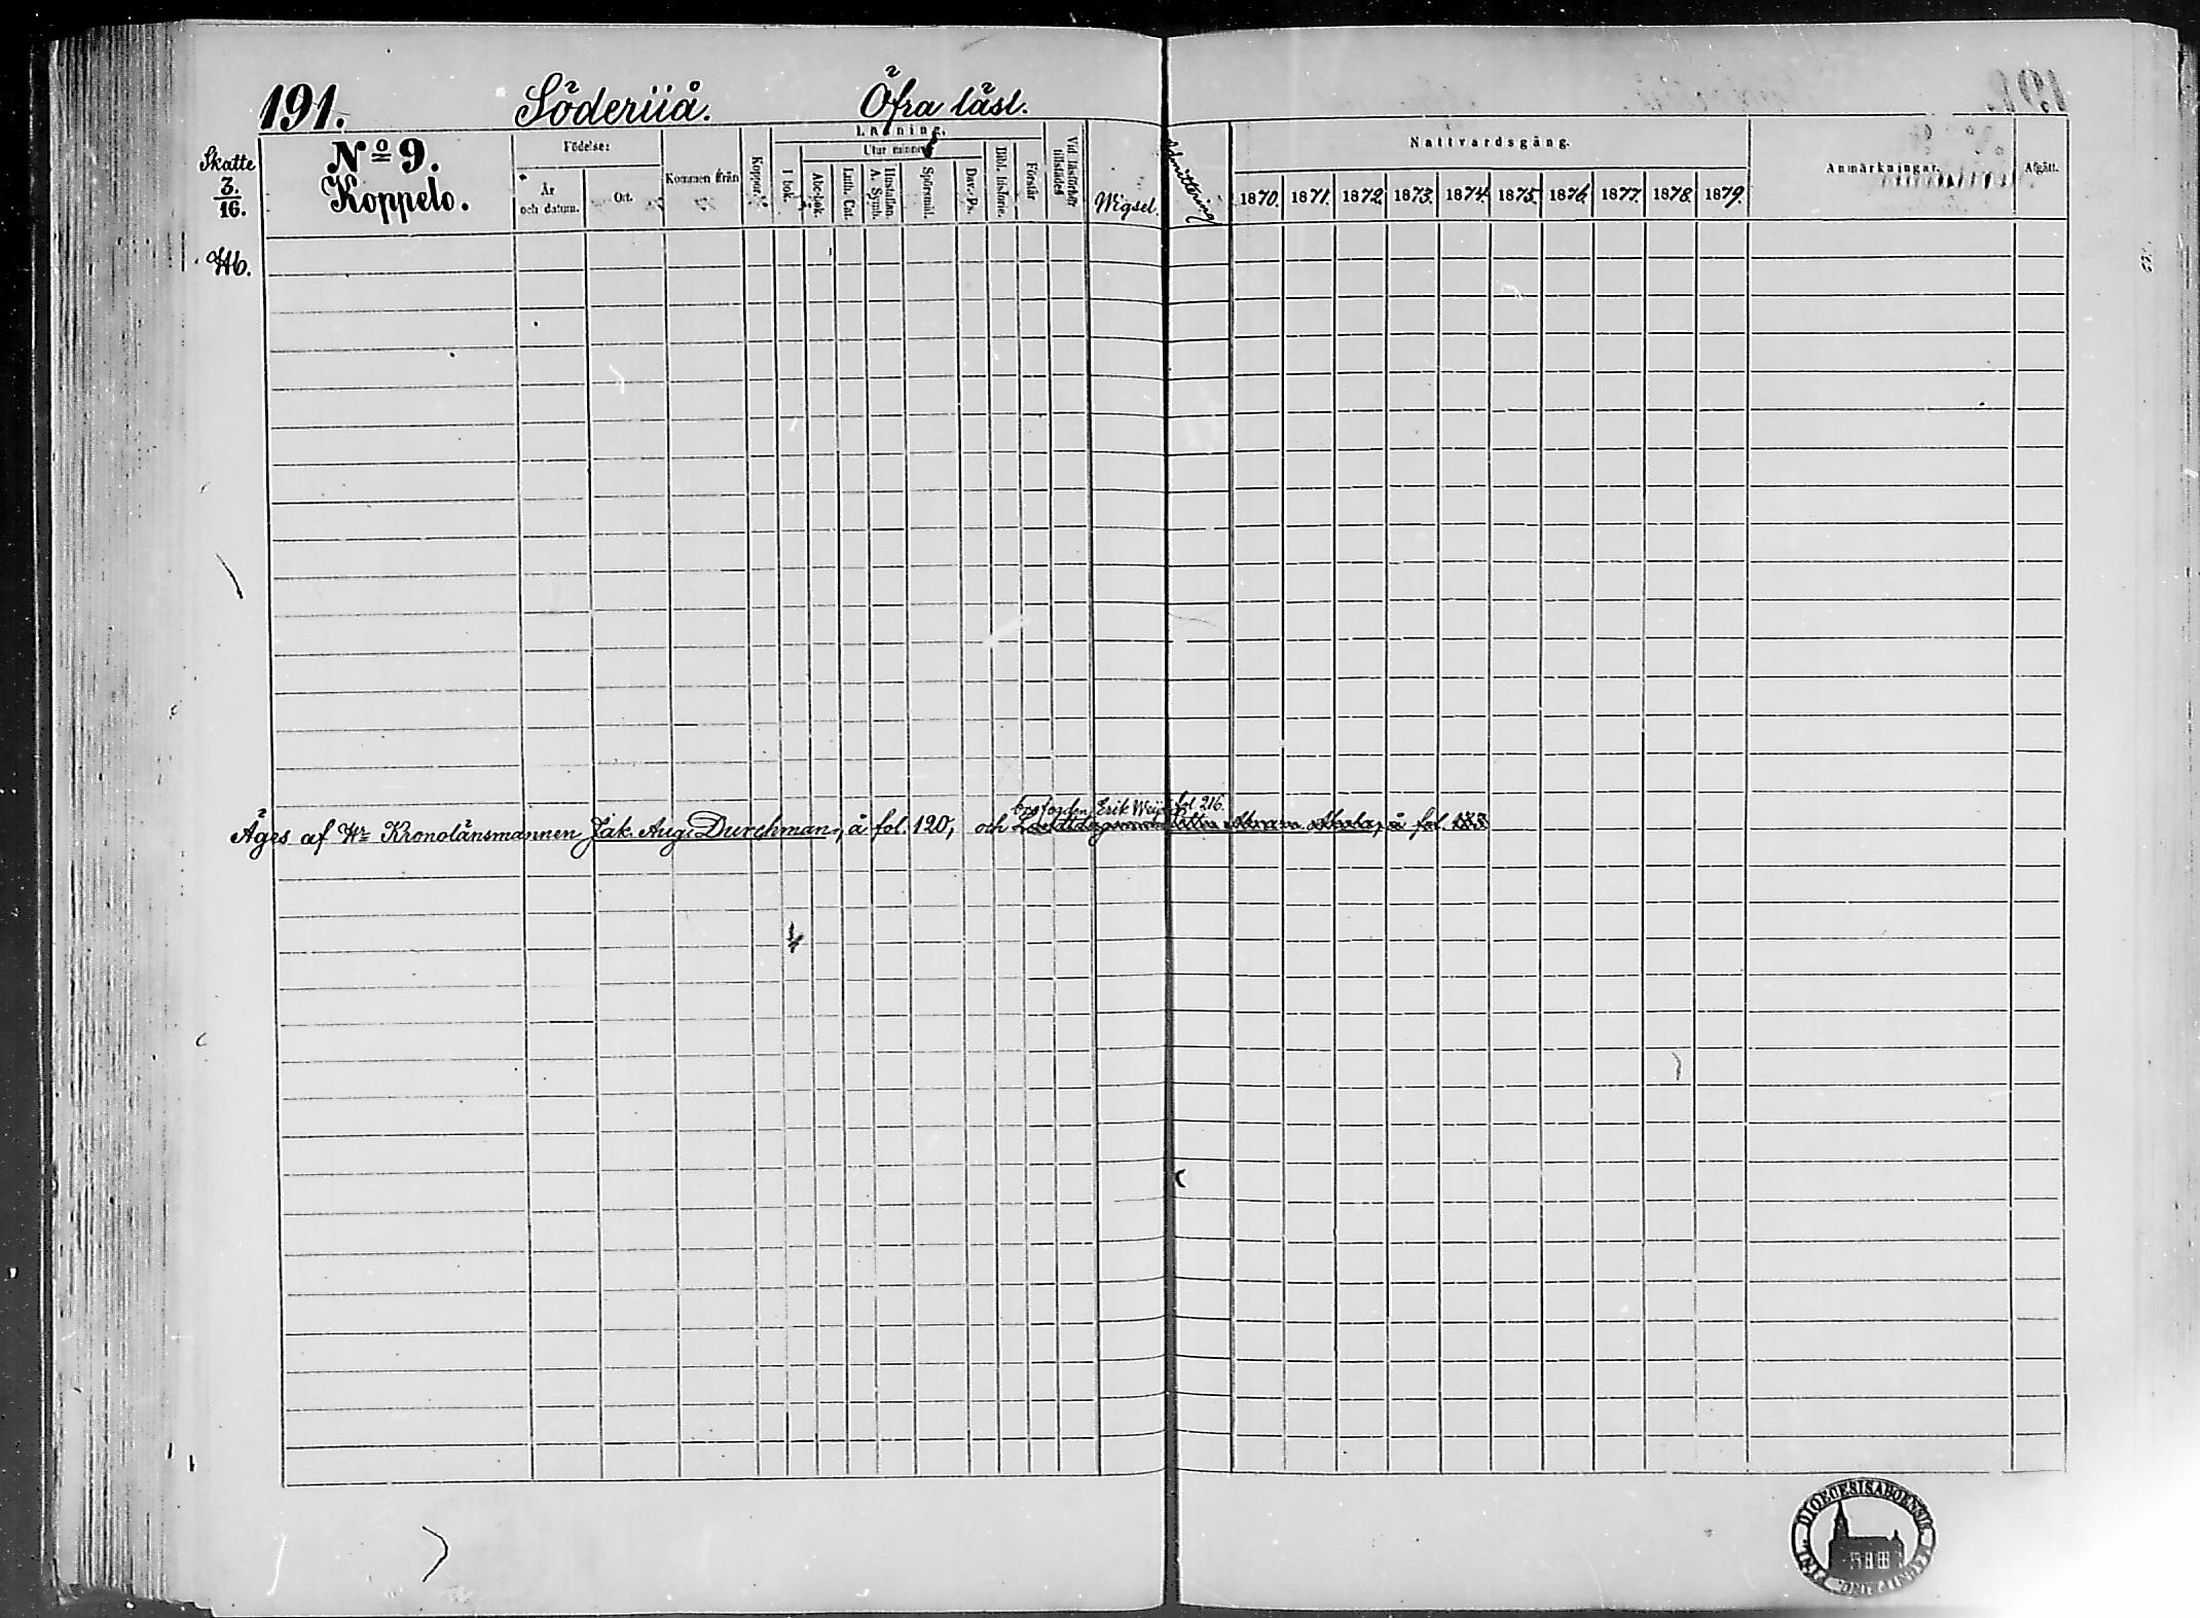 191.
Söderiiå.
Öfra läsl.
Skatte
3.
16.
Hb.
No 9.
Koppelo.
Födelse:
År
och datum.
Ort.
Kommen från
Koppor
Läsning.
Utur minnet
I bok.
Abc-bok.
Luth. Cat.
Hustaflan.
A. Symb.
Spörsmål.
Dav. Ps.
Bibl. historie.
Förstår
Vid läsförhör
tillstädes
Wigsel.
Admittering
Nattvardsgång.
1870. 1871. 1872. 1873. 1874. 1875. 1876. 1877. 1878. 1879.
Anmärkningar.
Afgått.
Erik fol. 216.
Äges af Hr Kronolänsmannen Jak. Aug. Durchman, å fol. 120, och Abram å fol.
DIOECESIS ABOENSIS